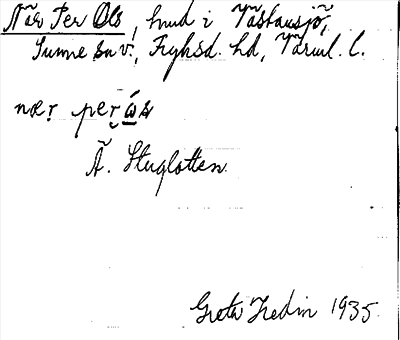 När Per Ols, hmd i Västansjö,
Sunne sn v., Fryksd. hd, Värml. l.
nær peṛ ώ̱s
Ä. Stuglotten.
Greta Hedin 1935.